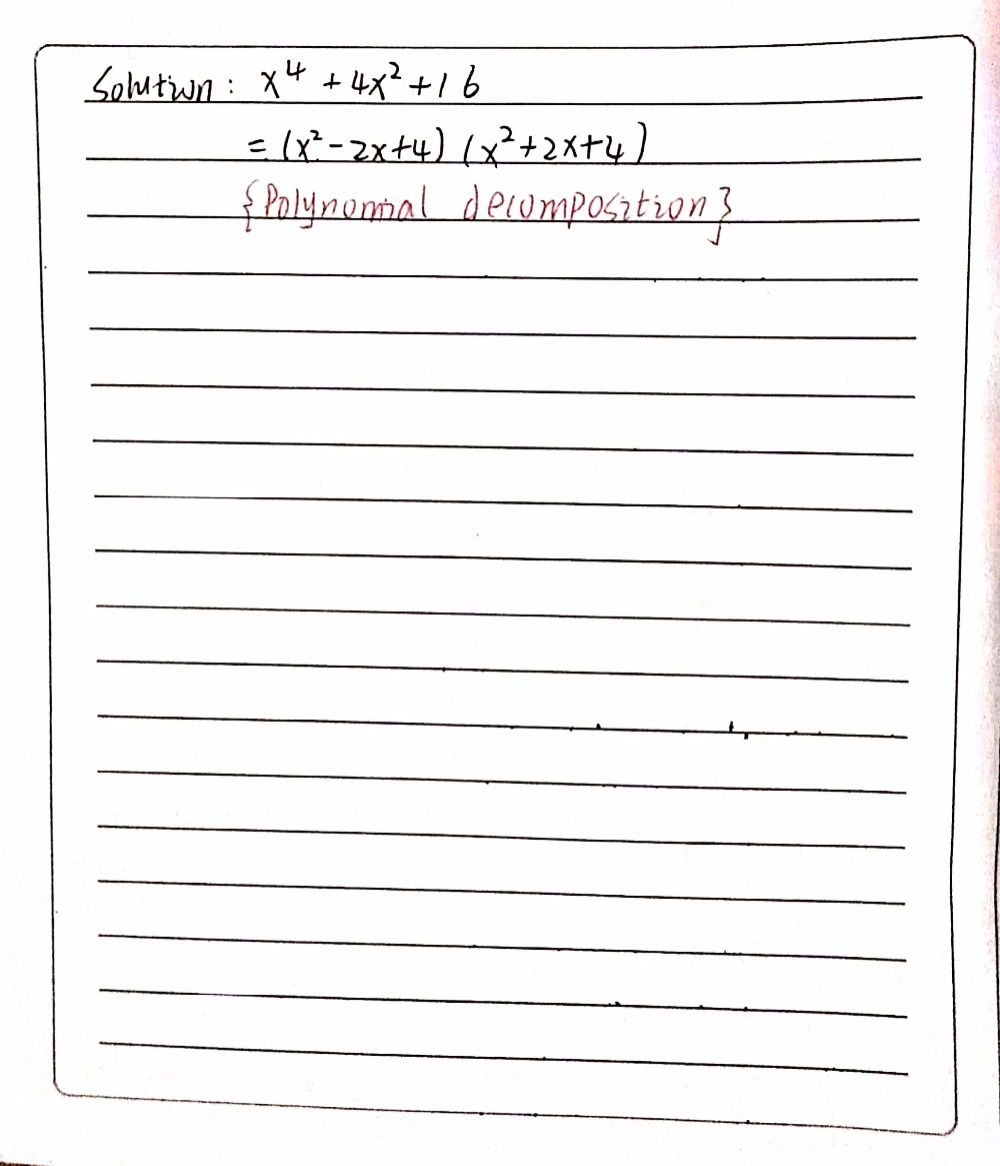 Solution: x⁴ + 4x² + 16
= (x² - 2x + 4) (x² + 2x + 4)
{Polynomial decomposition}